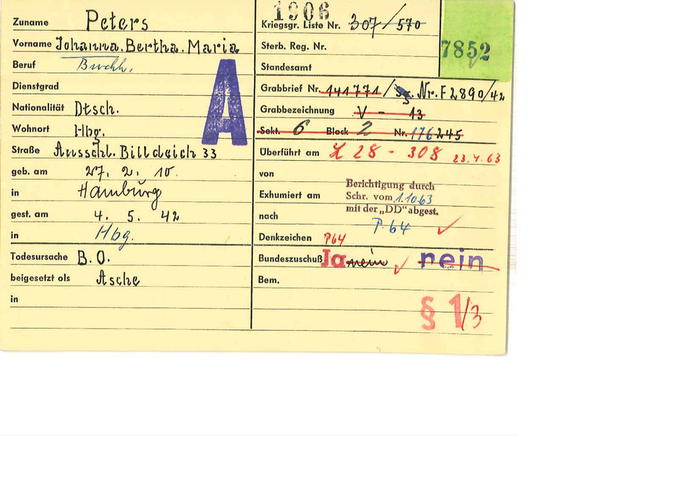 1906
Zuname Peters
Vorname Johanna, Bertha, Maria
Beruf Buchh.
Dienstgrad
Nationalität Dtsch.
Wohnort Hbg.
Straße Ausschl. Billdeich 33
geb. am 27. 2. 10.
in Hamburg
gest. am 4. 5. 42
in Hbg.
Todesursache B.O.
beigesetzt als Asche
in
A
Kriegsgr. Liste Nr. 307/570
7852
Sterb. Reg. Nr.
Standesamt
Grabbrief Nr. 141771 / Nr. F 2890/42
Grabbezeichnung V - 13
Sekt. 6 Block 2 Nr. 176245
Überführt am Z 28 - 308 23.4.63
von
Exhumiert am
Berichtigung durch
Schr. vom 1.10.63
mit der „DD" abgest.
nach P. 64
Denkzeichen P64
Bundeszuschuß Ja nein nein
Bem.
§ 1/3